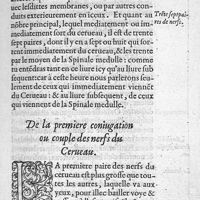 uec lesdites membranes, ou par autres con-
duits exterieurement en iceux. Et quant au
nõbre principal, lequel mediatement ou im-
mediatement sort du cerueau, il est de trente
sept paires, dont il y en a sept ou huit qui sor-
tent immediatement du cerueau, & les trente
par le moyen de la Spinale medulle: comme
tu entédras au quel ou ce liure icy & liure sub
sequent: car à ceste heure nous parlerons seu-
lement de ceux qui immediatement viennẽt
du Cerueau: & au liure subsequent, de ceux
qui viennent de la Spinale medulle.
Trẽte sept pai-
res de nerfs.
De la premiere coniugation
ou couple des nerfs du
Cerueau.
LA premiere paire des nerfs du
cerueau est plus grosse que tou-
tes les autres, laquelle va aux
yeux, pour illec bailler voye &